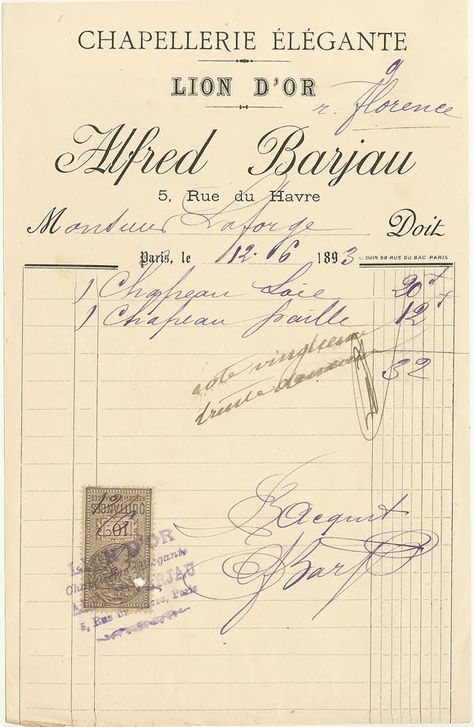 CHAPELLERIE ÉLÉGANTE
LION D'OR
9 r. Florence
Alfred Barjau
5, Rue du Havre
Monsieur Laforge Doit
Paris, le 12. 6 1893
OUIN 99 RUE DU BAC PARIS
1 Chapeau Soie 20 f
1 Chapeau paille 12 f
32
cote vingtieme
trente deuxieme
QUITTANCES
10c
Pr Acquit
LION D'OR
Chapellerie Élégante
ALFRED BARJAU
5, Rue du Havre, Paris